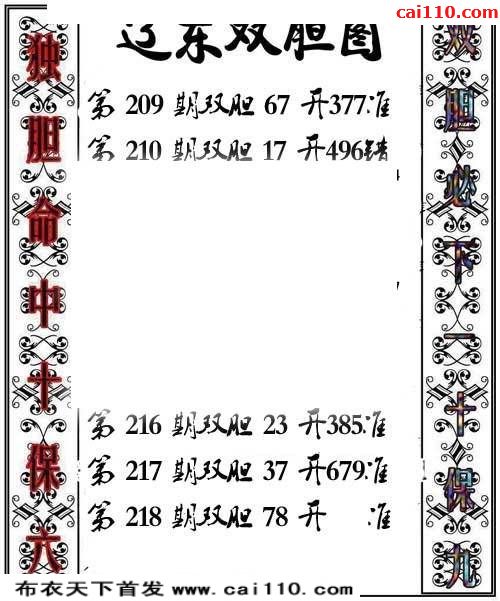 cai110.com
辽东双胆图
独胆命中十保六
第 209 期双胆 67 开377准
第 210 期双胆 17 开496错
第 216 期双胆 23 开385准
第 217 期双胆 37 开679准
第 218 期双胆 78 开 准
双胆必下一十保九
布衣天下首发 www.cai110.com